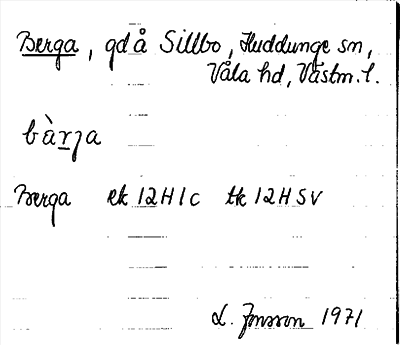 Berga, gd å Sillbo, Huddunge sn,
Våla hd, Västm. l.
bàr̲ȷa
Berga ek 12H1c tk 12HSV
L. Jonsson 1971